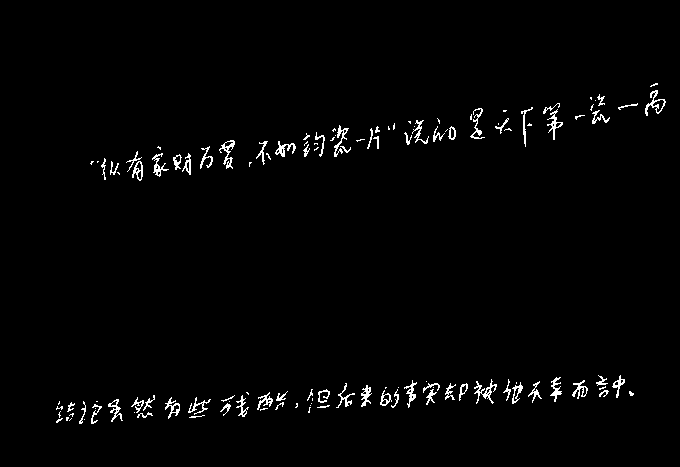 “纵有家财万贯，不如钧瓷一片”说的是天下第一瓷一高
结论虽然有些残酷，但后来的事实却被他不幸而言中。